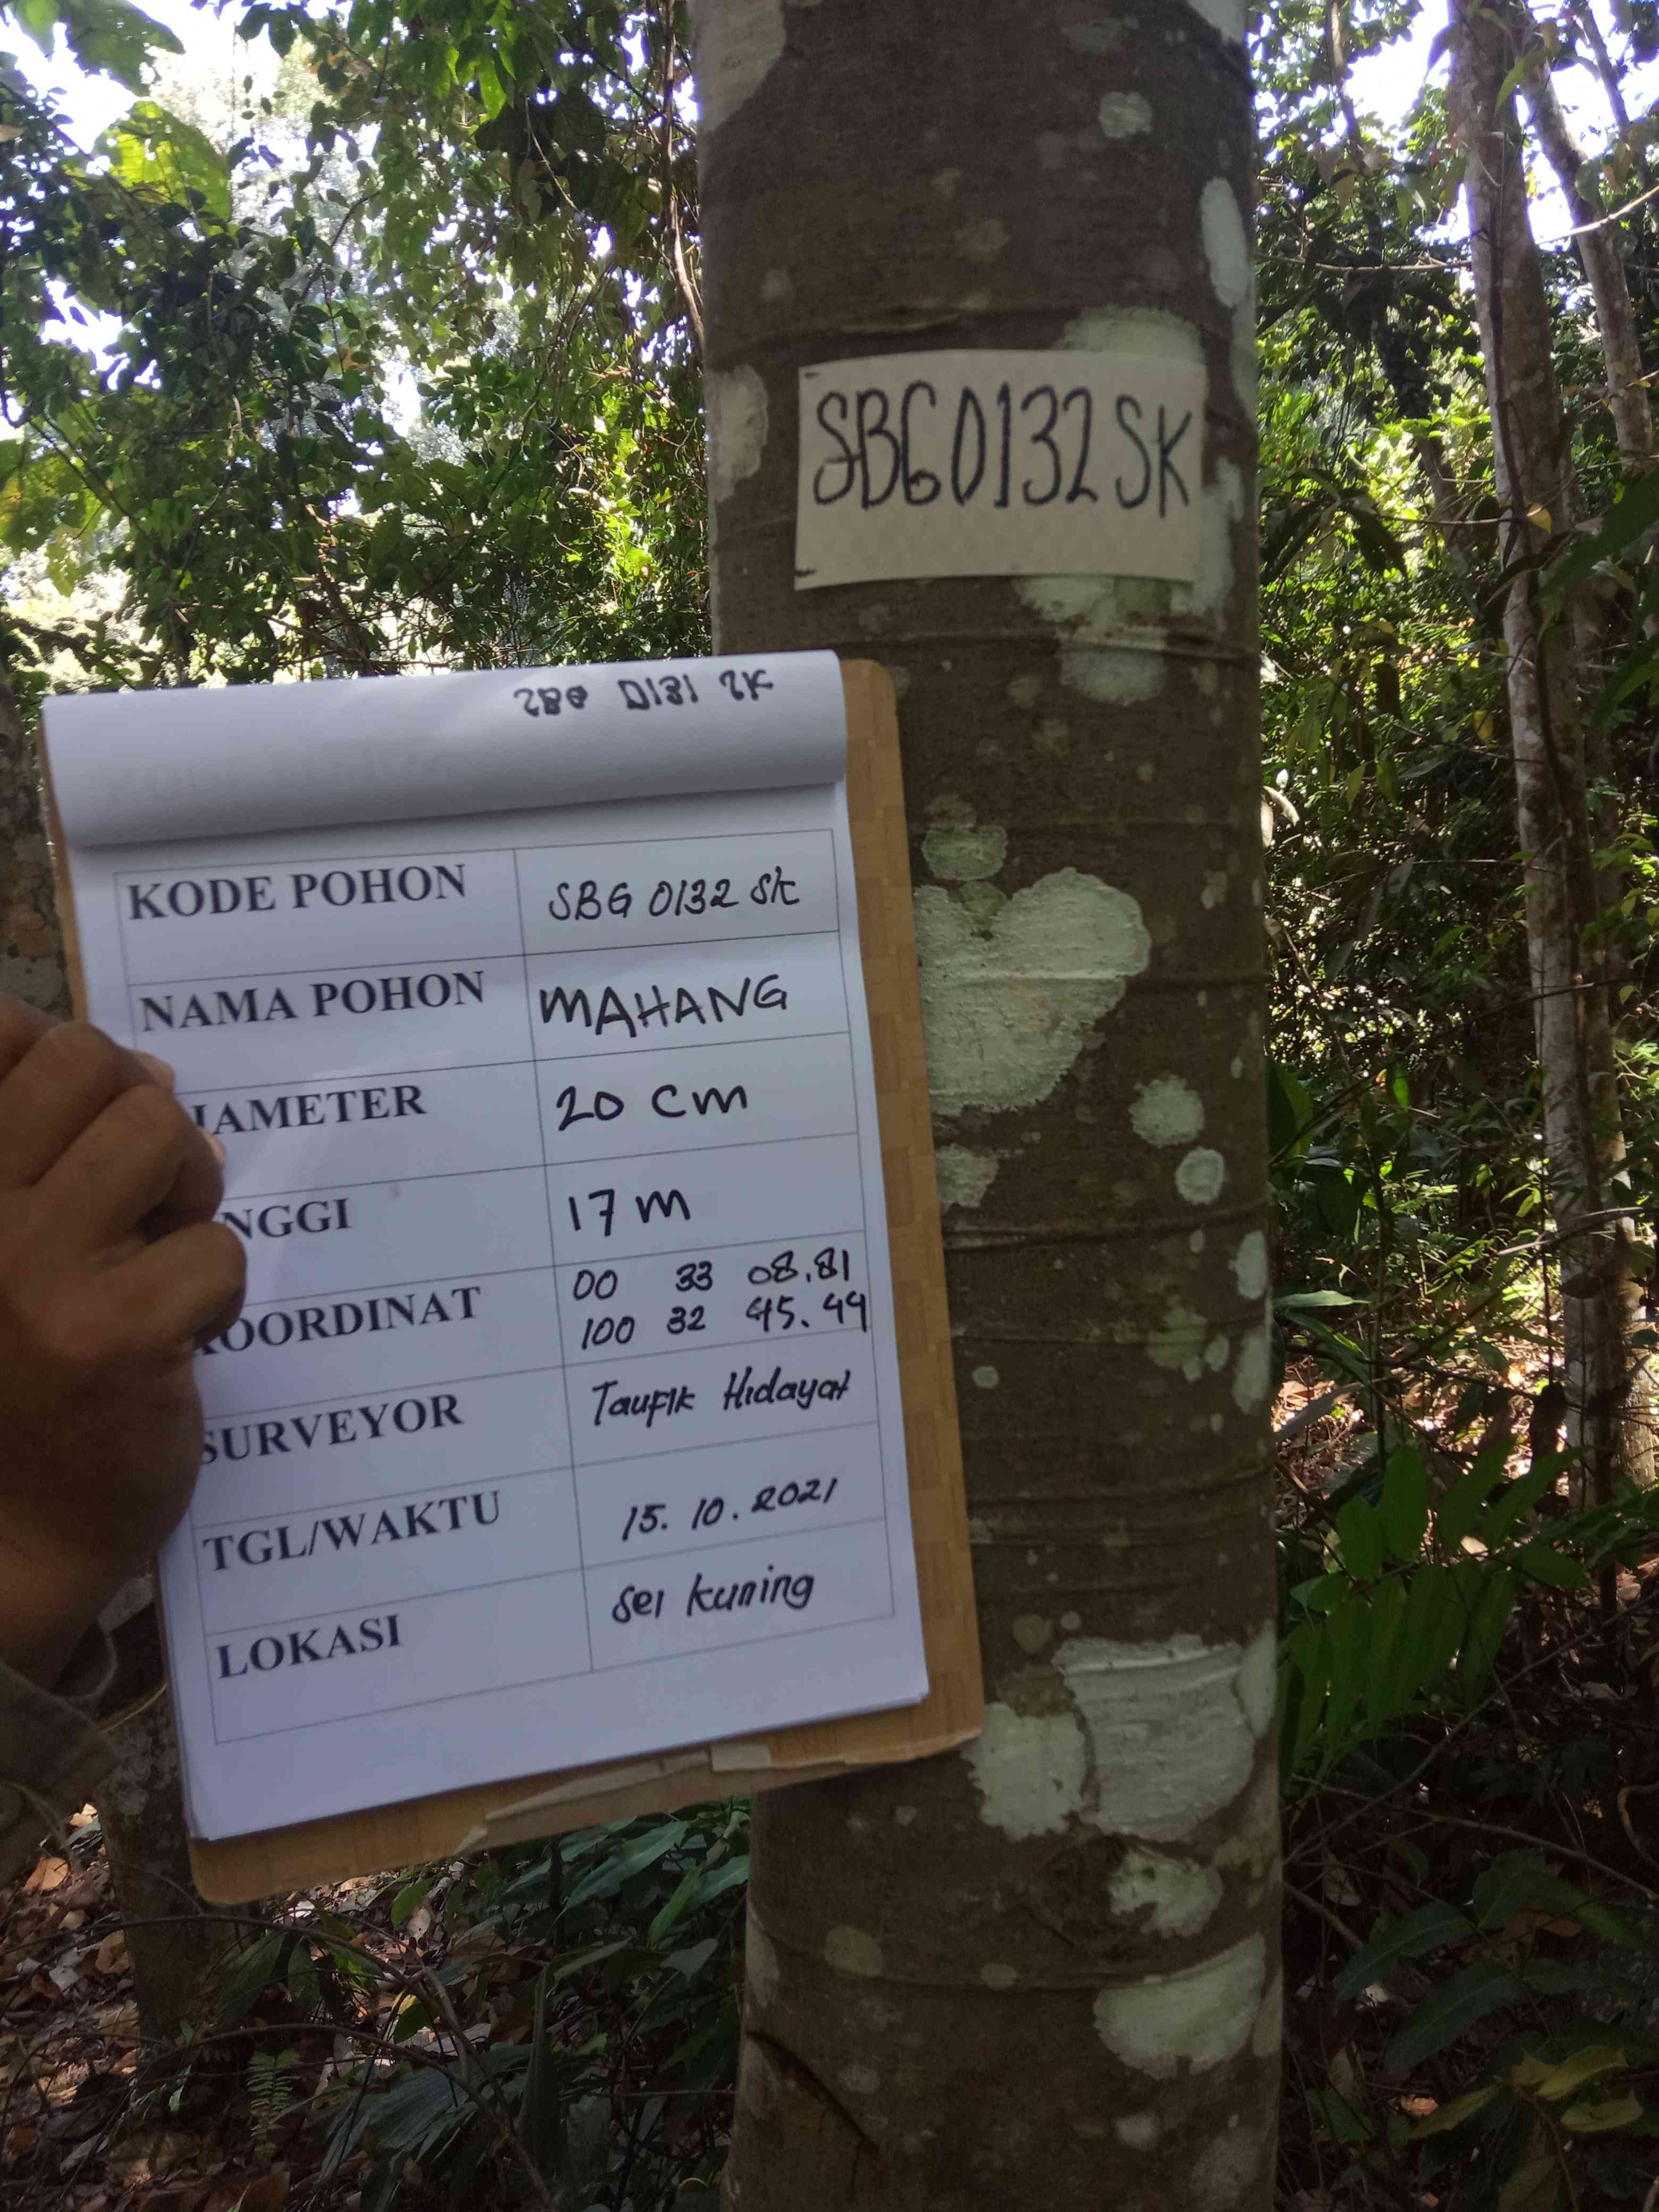 SBG0132SK
SBG 0131 SK
KODE POHON SBG 0132 SK
NAMA POHON MAHANG
IAMETER 20 cm
NGGI 17 m
OORDINAT 00 33 08.81
100 32 45.44
SURVEYOR Taufik Hidayat
TGL/WAKTU 15.10.2021
LOKASI Sei Kuning